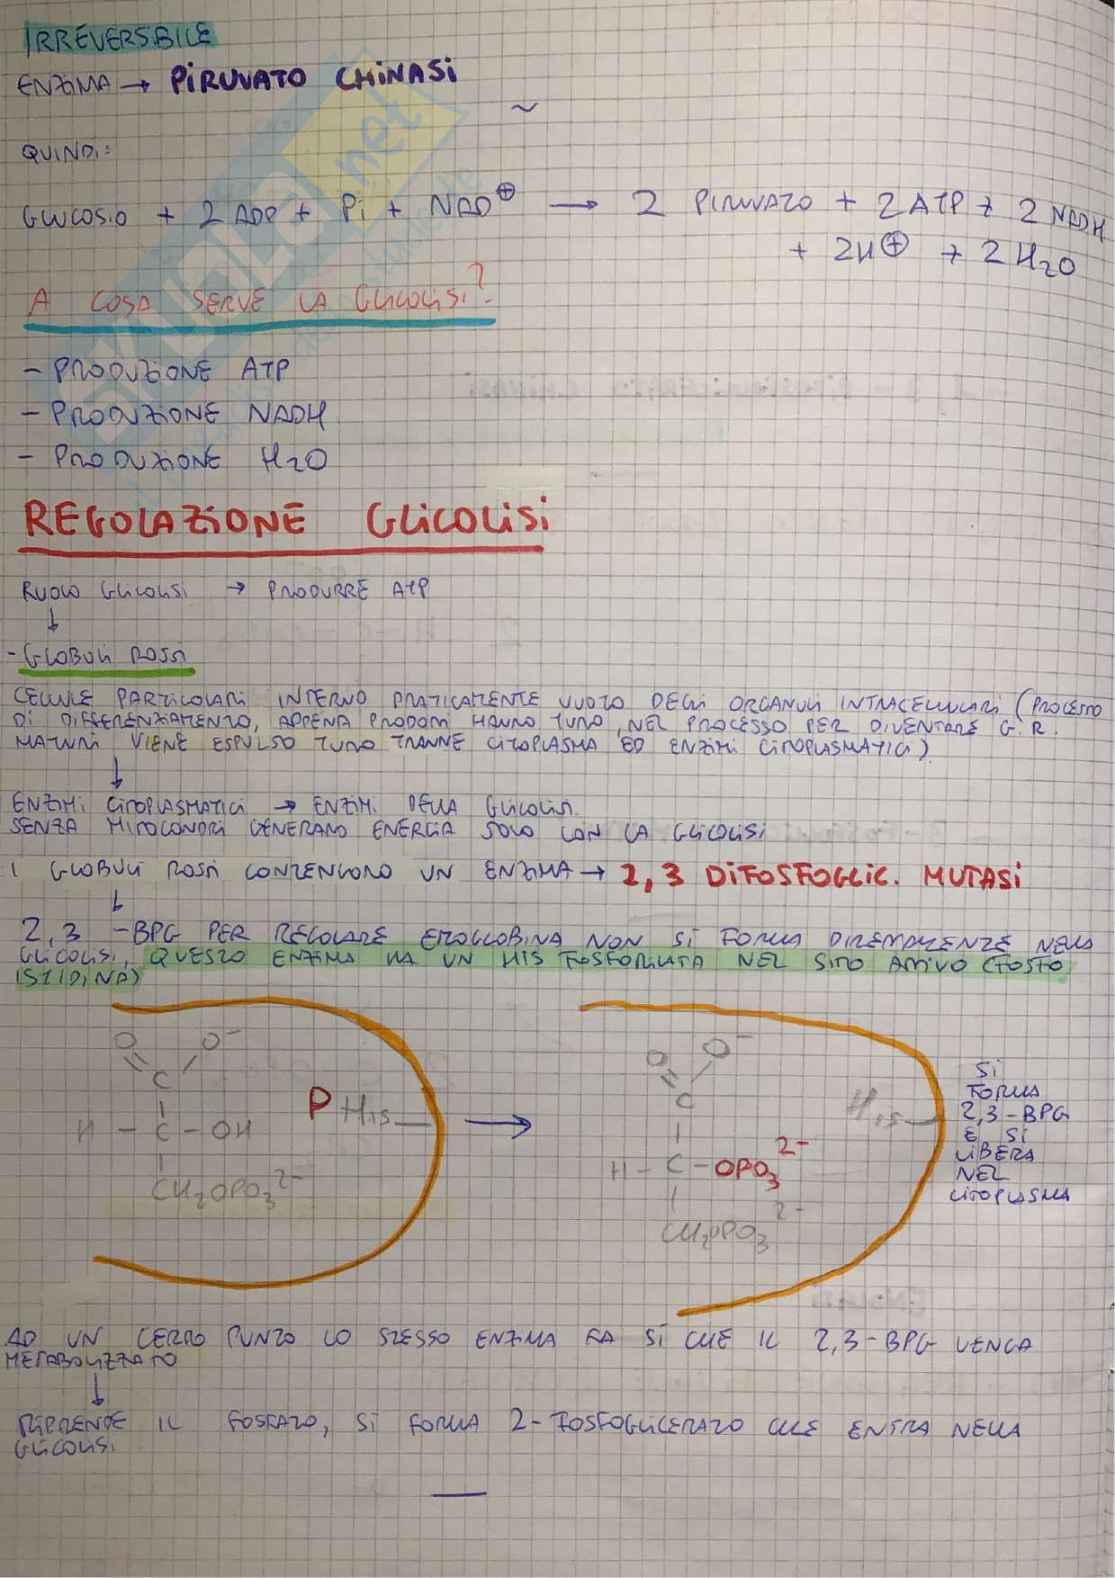 IRREVERSBILE
ENZIMA → PIRUVATO CHINASI
~
QUINDI:
GLUCOSIO + 2 ADP + Pi + NAD⊕ → 2 PIRUVATO + 2 ATP + 2 NADH
+ 2H⊕ + 2 H2O
A COSA SERVE LA GLICOLISI?
- PRODUZIONE ATP
- PRODUZIONE NADH
- PRODUZIONE H2O
REGOLAZIONE GLICOLISI
RUOLO GLICOLISI → PRODURRE ATP
↓
- GLOBULI ROSSI
CELLULE PARTICOLARI INTERNO PRATICAMENTE VUOTO DEGLI ORGANULI INTRACELLULARI (PROCESSO
DI DIFFERENZIAMENTO, APPENA PRODOTTI HANNO TUTTO, NEL PROCESSO PER DIVENTARE G.R.
MATURI VIENE ESPULSO TUTTO TRANNE CITOPLASMA ED ENZIMI CITOPLASMATICI)
↓
ENZIMI CITOPLASMATICI → ENZIMI DELLA GLICOLISI.
SENZA MITOCONDRI GENERANO ENERGIA SOLO CON LA GLICOLISI
I GLOBULI ROSSI CONTENGONO UN ENZIMA → 2,3 DIFOSFOGLIC. MUTASI
↓
2,3 -BPG PER REGOLARE EMOGLOBINA NON SI FORMA DIRETTAMENTE NELLA
GLICOLISI, QUESTO ENZIMA HA UN HIS FOSFORILATA NEL SITO ATTIVO (FOSFO
ISTIDINA)
O O⁻
C
H - C - OH
CH2OPO3 2-
P HIS
→
O O⁻
C
H - C - OPO3 2-
CH2OPO3 2-
HIS
SI
FORMA
2,3-BPG
E SI
LIBERA
NEL
CITOPLASMA
AD UN CERTO PUNTO LO STESSO ENZIMA FA SÌ CHE IL 2,3-BPG VENGA
METABOLIZZATO
↓
RIPRENDE IL FOSFATO, SI FORMA 2-FOSFOGLICERATO CHE ENTRA NELLA
GLICOLISI